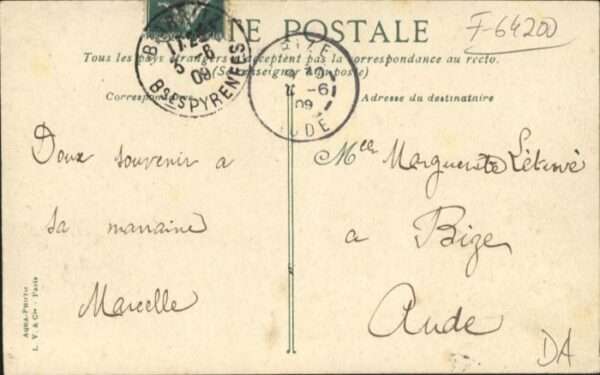 TE POSTALE
F-64200
Tous les pays étrangers n'acceptent pas la correspondance au recto.
(Se renseigner à la poste)
17
5 - 6
09
BSES PYRENEES
BIZE
6
09
AUDE
Correspondance
Adresse du destinataire
Doux souvenir a
sa marraine
Marcelle
Melle Marguerite
a
Bize
Aude
AQUA-PHOTO
L. V. & Cie - Paris
DA